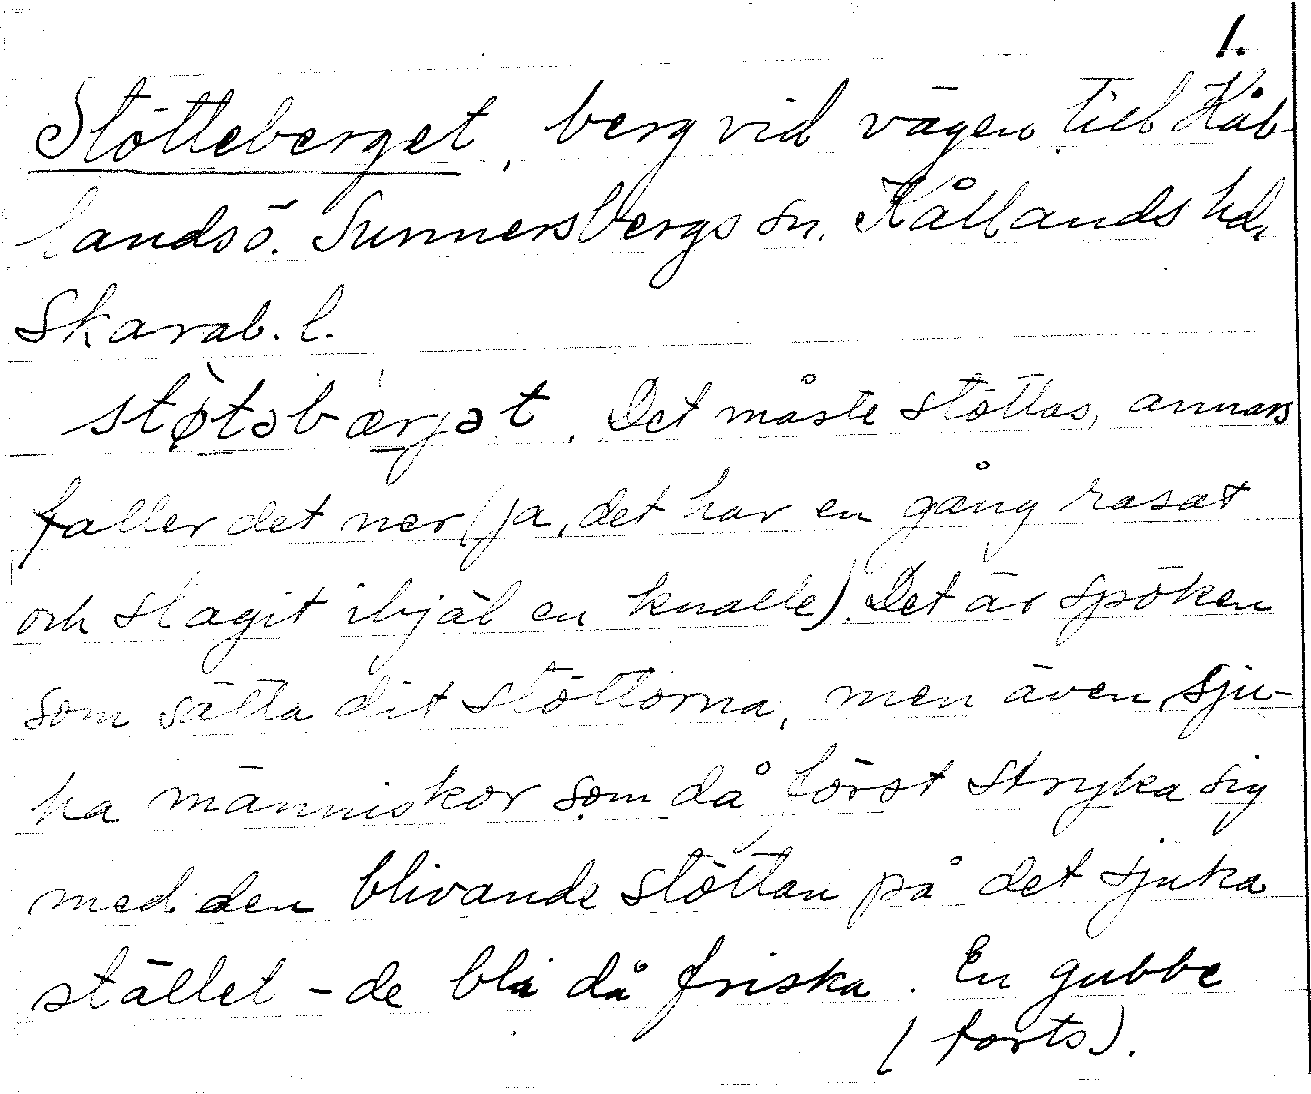 1.
Stötteberget, berg vid vägen till Kål-
landsö. Sunnersbergs sn. Kållands hd.
Skarab. l.
stø̀təbærjət. Det måste stöttas, annars
faller det ner (ja, det har en gång rasat
och slagit ihjäl en knalle). Det är spöken
som sätta dit stöttorna, men även sju-
ka människor som då först stryka sig
med den blivande stöttan på det sjuka
stället - de bli då friska. En gubbe
(forts).